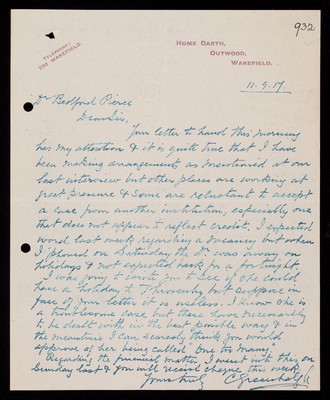 932
TELEPHONE:
HOME GARTH,
OUTWOOD,
WAKEFIELD.
11-9-17.
Dr Bedford Pierce
Dear Sir,
Your letter to hand this morning
has my attention & it is quite true that I have
been making arrangements as mentioned at our
last interview but other places are working at
great pressure & some are reluctant to accept
a case from another institution, especially one
that does not appear to reflect credit. I expected
word last week regarding a vacancy but when
I phoned on Saturday the Dr was away on
holidays & not expected back for a fortnight.
I was going to write you to see if she could
have a holiday to but suppose in
face of your letter it is useless. I know she is
a troublesome case but these have necessarily
to be dealt with in the best possible way & in
the meantime I can scarcely think you would
approve of her being called "one too many".
Regarding the financial matter I went into this on
Sunday last & you will receive cheque this week.
Yours truly
C Greenhalgh